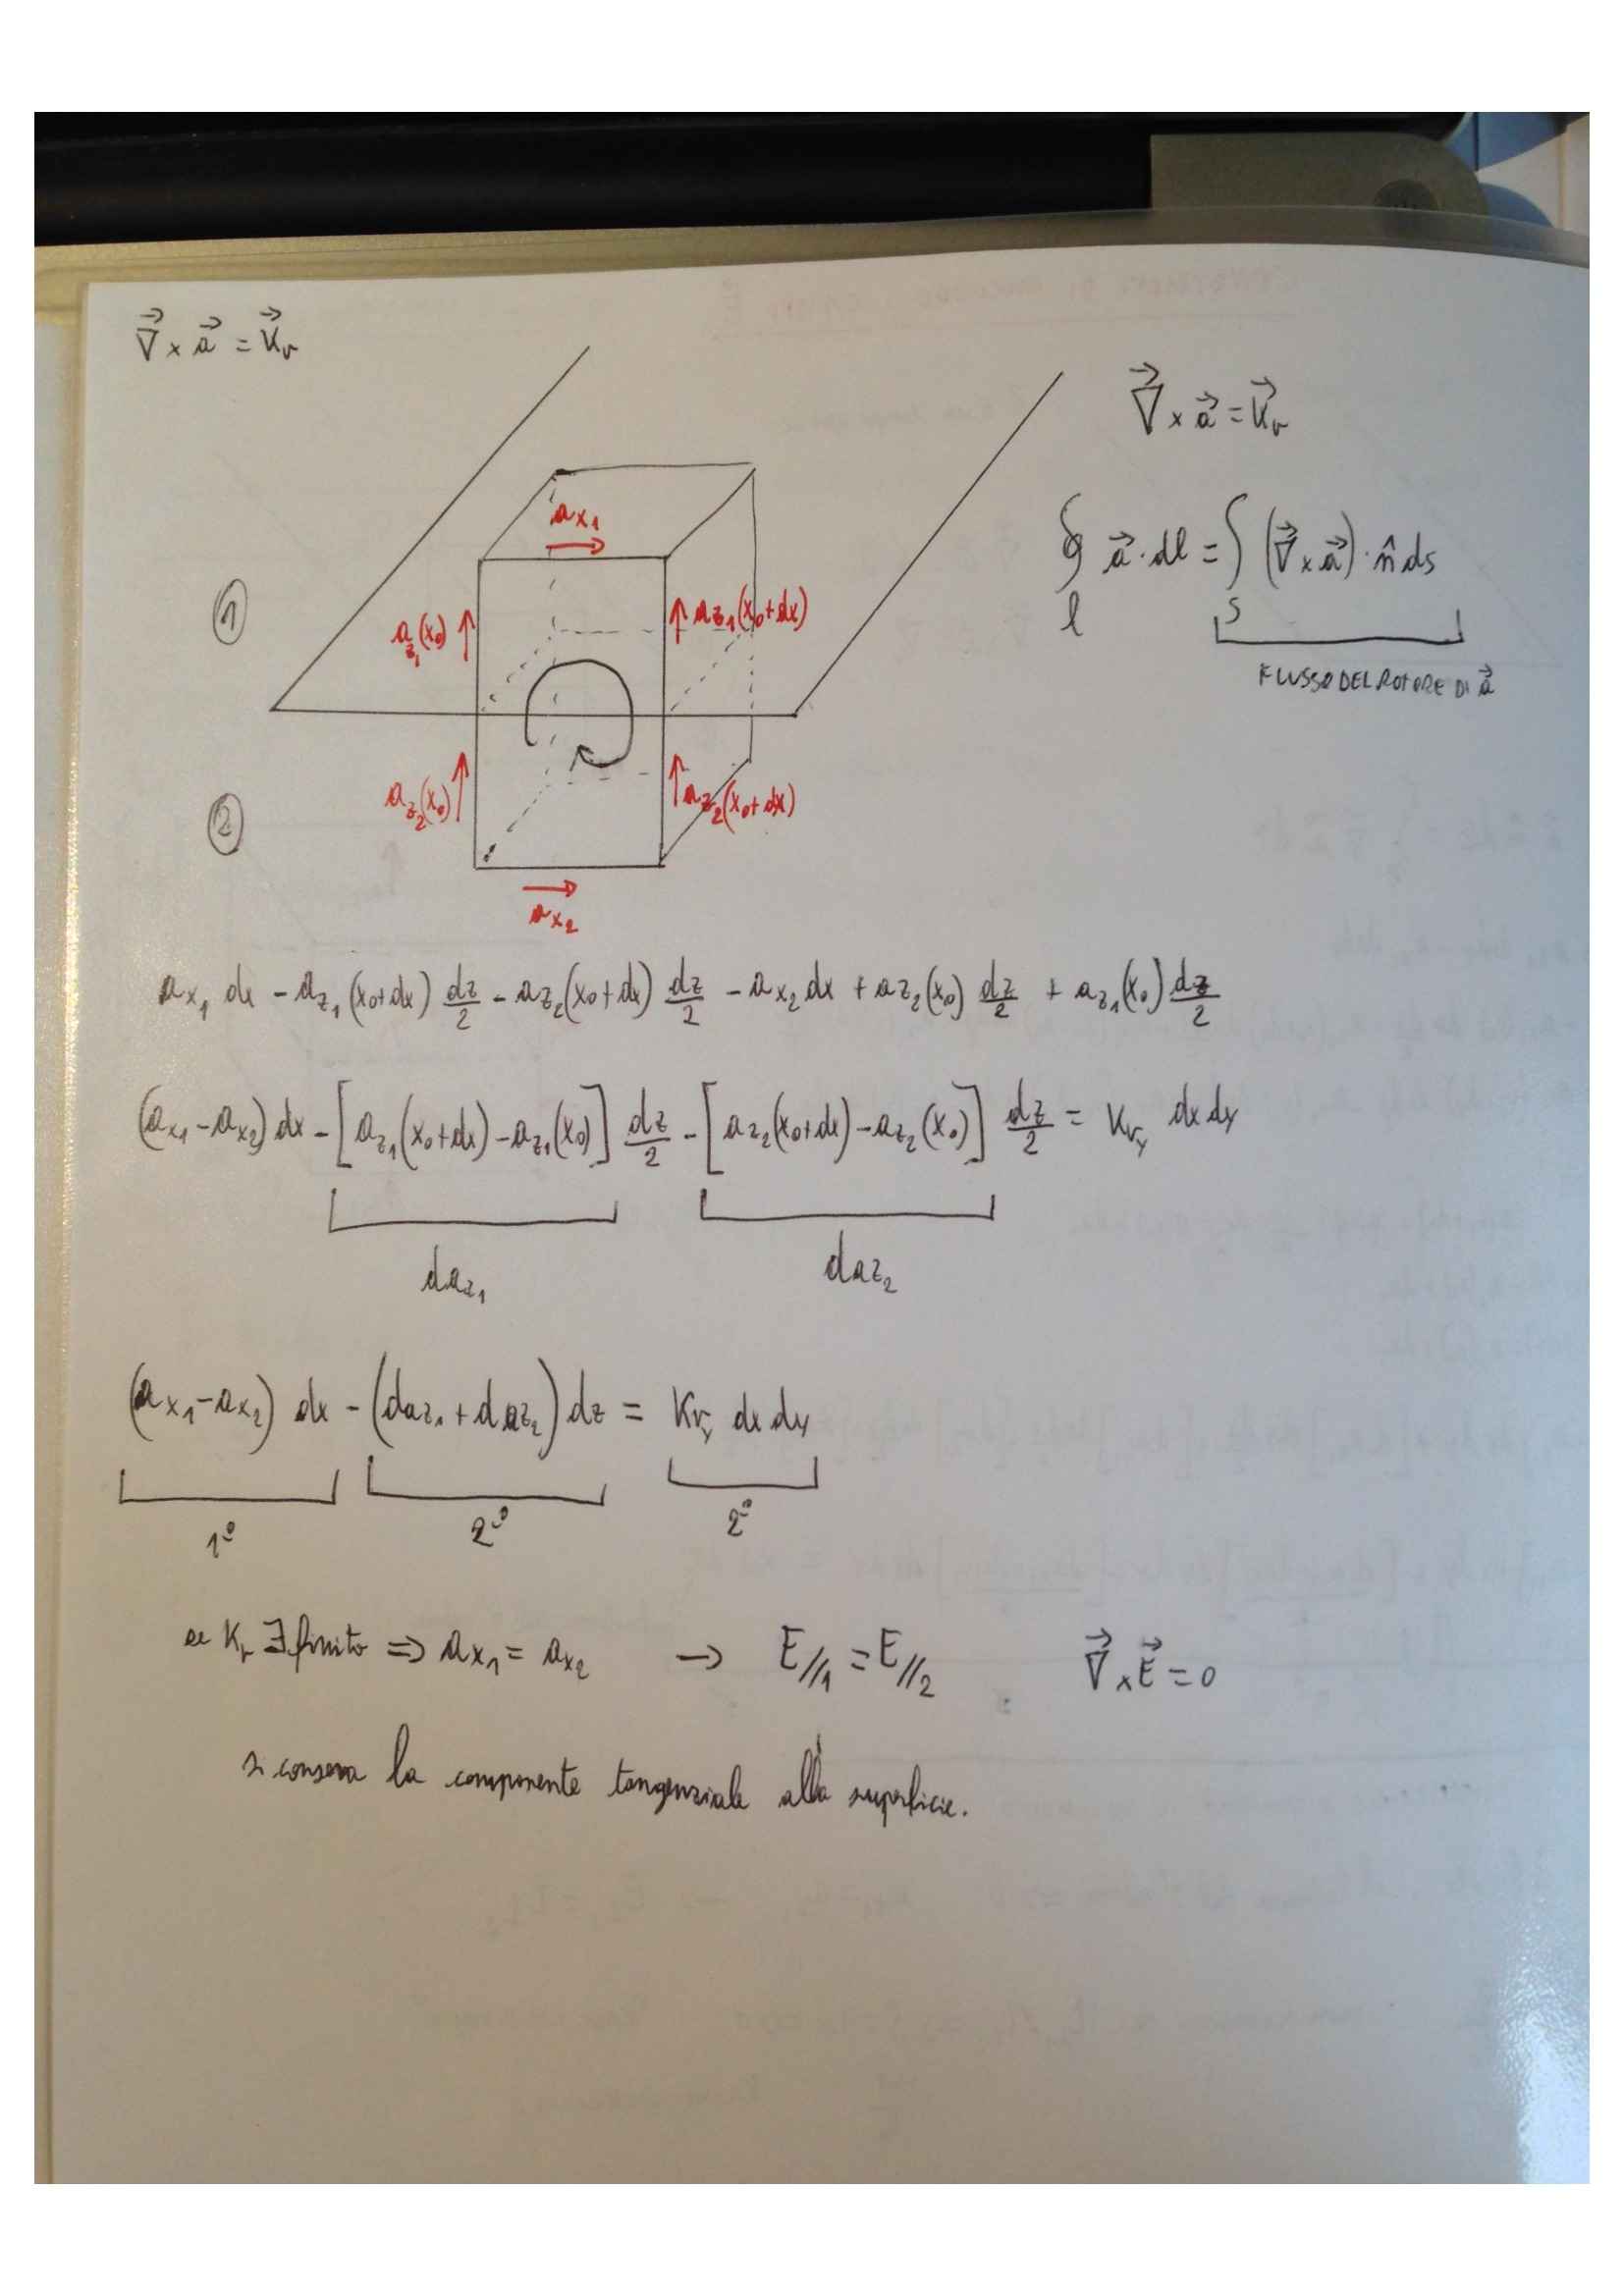 ∇⃗ × a⃗ = K⃗v
∇⃗ × a⃗ = K⃗v
∮l a⃗ · dl = ∫S (∇⃗ × a⃗) · n̂ ds
FLUSSO DEL ROTORE DI a⃗
ax1
1
az1(x0)
az1(x0+dx)
2
az2(x0)
az2(x0+dx)
ax2
ax1 dx - az1(x0+dx) dz/2 - az2(x0+dx) dz/2 - ax2 dx + az2(x0) dz/2 + az1(x0) dz/2
(ax1 - ax2) dx - [az1(x0+dx) - az1(x0)] dz/2 - [az2(x0+dx) - az2(x0)] dz/2 = Kvy dx dy
daz1 daz2
(ax1 - ax2) dx - (daz1 + daz2) dz = Kvy dx dy
1° 2° 2°
se Kv ∃ finito ⇒ ax1 = ax2 → E//1 = E//2 ∇⃗ × E⃗ = 0
si conserva la componente tangenziale alla superficie.